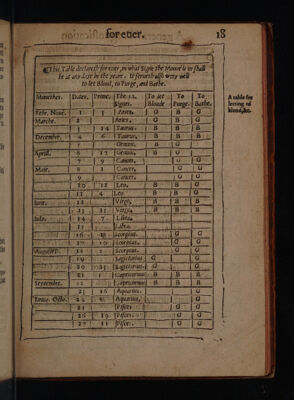 for euer.
18
This Table declareth for euer, in what Signe the Moone is or shall
be at any day in the yeare. It serueth also very well
to let Bloud, to Purge, and Bathe.
A table for
letting of
bloud, &c.
Monethes. Dates. Prime. The 12. Signes. To let Bloude To Purge. To Bathe.
Febr. Noue. 1 Aries. G B G
Marche. 2 Aries. G B G
3 14 Taurus. B B B
Decembre. 4 6 Taurus. B B B
5 Gemini. B G
Aprill. 6 Gemini. B B G
7 9 Cancer. G G
Maie. 8 1 Cancer. G G
9 Cancer. G G
10 Leo. B B G
11 4 Leo. B B G
Iune. 12 Virgo. B B B
13 Virgo. B B B
Iulie. 14 7 Libra.
15 Libra.
16 Scorpius. G G
17 Scorpius. G G
Auguste. 18 Scorpius. G G
19 Sagittarius G G
20 Sagittarius G G
21 Capricornus B B B
Septembre. 22 Capricornus B B B
23 16 Aquarius. G
Ianu. Octo. 24 8 Aquarius. G
25 Pisces G G
26 19 Pisces G G
27 Pisces. G G